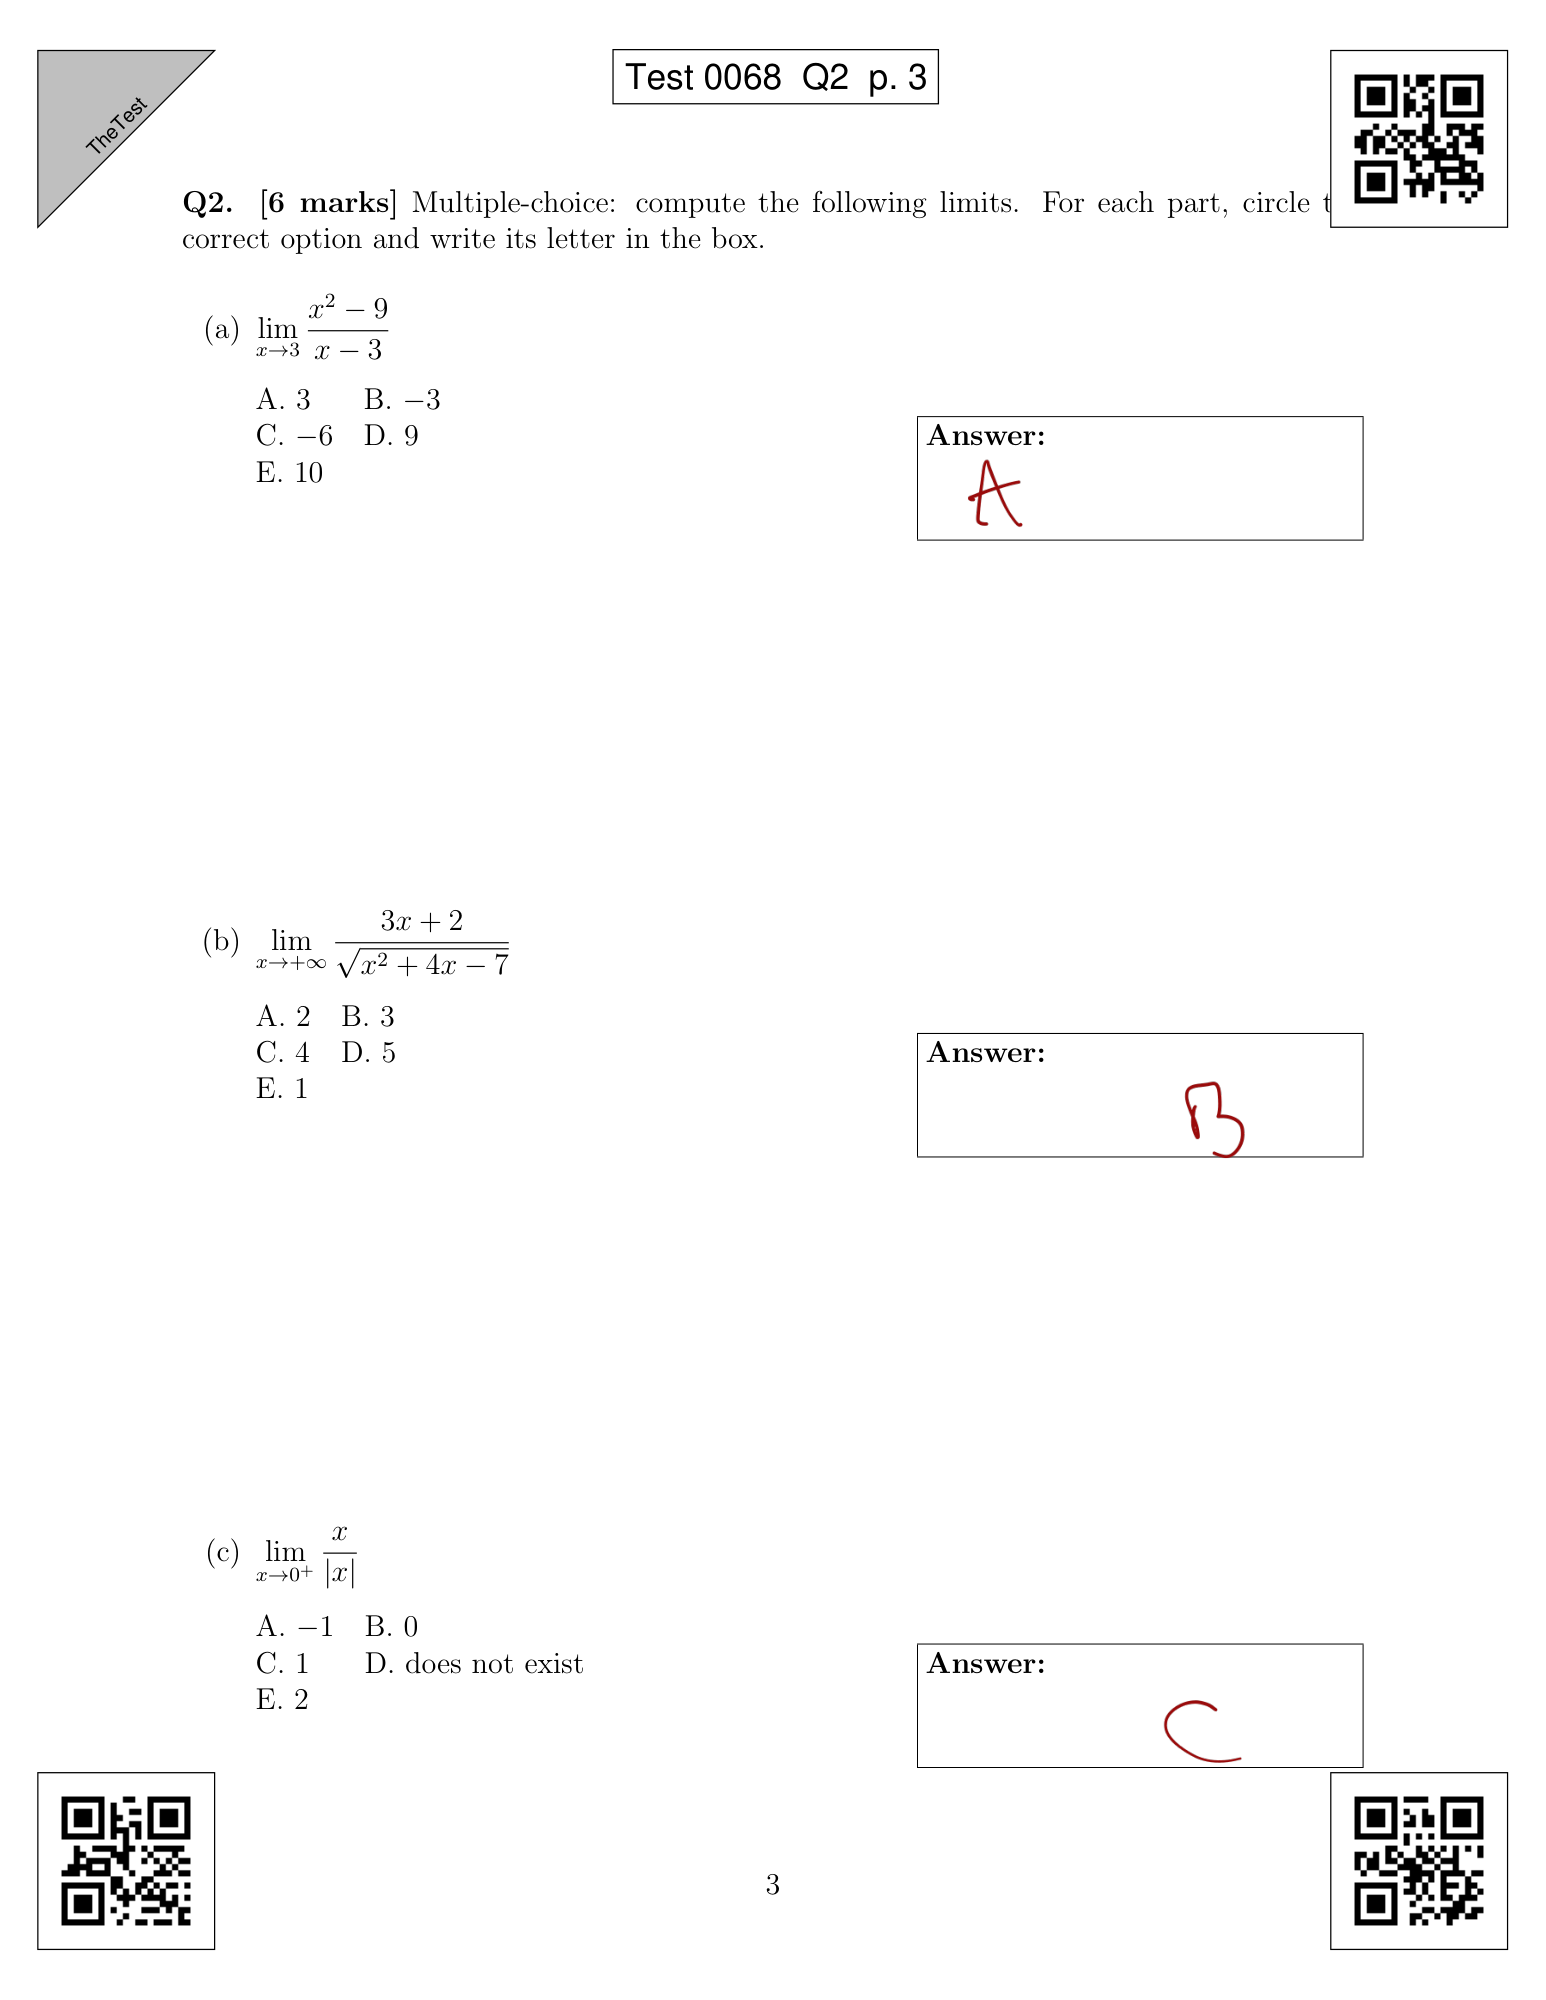 TheTest
Test 0068 Q2 p. 3
Q2. [6 marks] Multiple-choice: compute the following limits. For each part, circle
correct option and write its letter in the box.
(a) lim x→3 (x² − 9)/(x − 3)
A. 3 B. −3
C. −6 D. 9
E. 10
Answer:
A
(b) lim x→+∞ (3x + 2)/√(x² + 4x − 7)
A. 2 B. 3
C. 4 D. 5
E. 1
Answer:
B
(c) lim x→0⁺ x/|x|
A. −1 B. 0
C. 1 D. does not exist
E. 2
Answer:
C
3